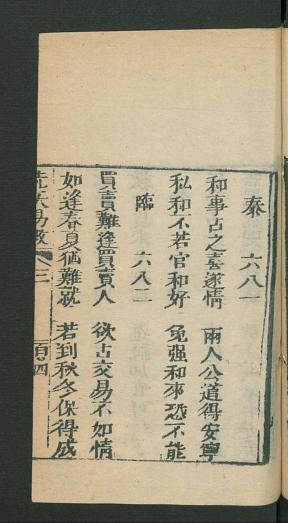 泰 六八一
和事占之喜遂情 兩人公道得安寧
私和不若官和好 免强和來恐不能
臨 六八二
買賣難逢買賣人 欲占交易不如情
如逢春夏猶難就 若到秋冬保得成
先天易數 三 頁四